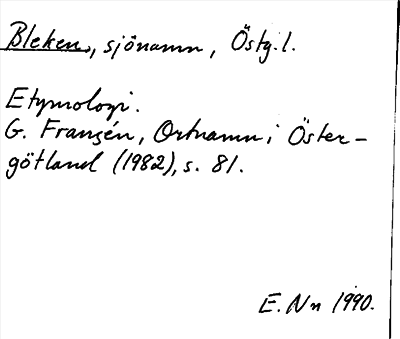 Bleken, sjönamn, Östg.l.
Etymologi.
G. Franzén, Ortnamn i Öster-
götland (1982), s. 81.
E. Nn 1990.